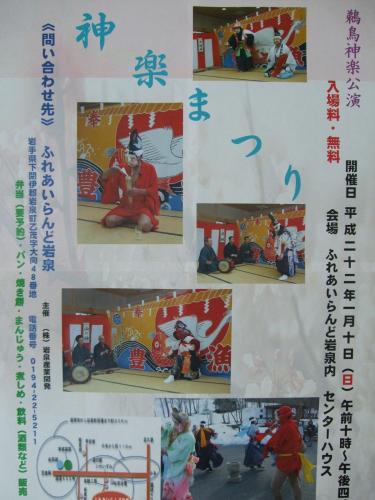 鵜鳥神楽公演
入場料・無料
開催日 平成二十二年一月十日（日）午前十時～午後四
会場 ふれあいらんど岩泉内 センターハウス
神楽まつり
《問い合わせ先》 ふれあいらんど岩泉
岩手県下閉伊郡岩泉町乙茂字大向48番地 電話番号 0194-22-5211
主催 （株）岩泉産業開発
弁当（要予約）・パン・焼き餅・まんじゅう・煮しめ・飲料（酒類など）販売
奉
豊
豊
漁